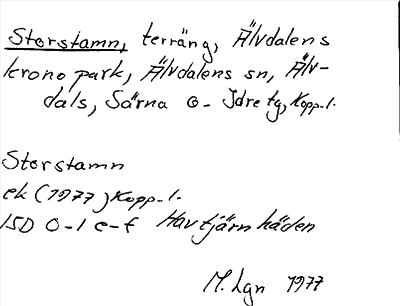 Storstamn, terräng, Älvdalens
kronopark, Älvdalens sn, Älv-
dals, Särna o- Idre tg, Kopp-l.
Storstamn
ek (1977) Kopp-l.
15D 0-1 e-f Havtjärnheden
M. Lgn 1977